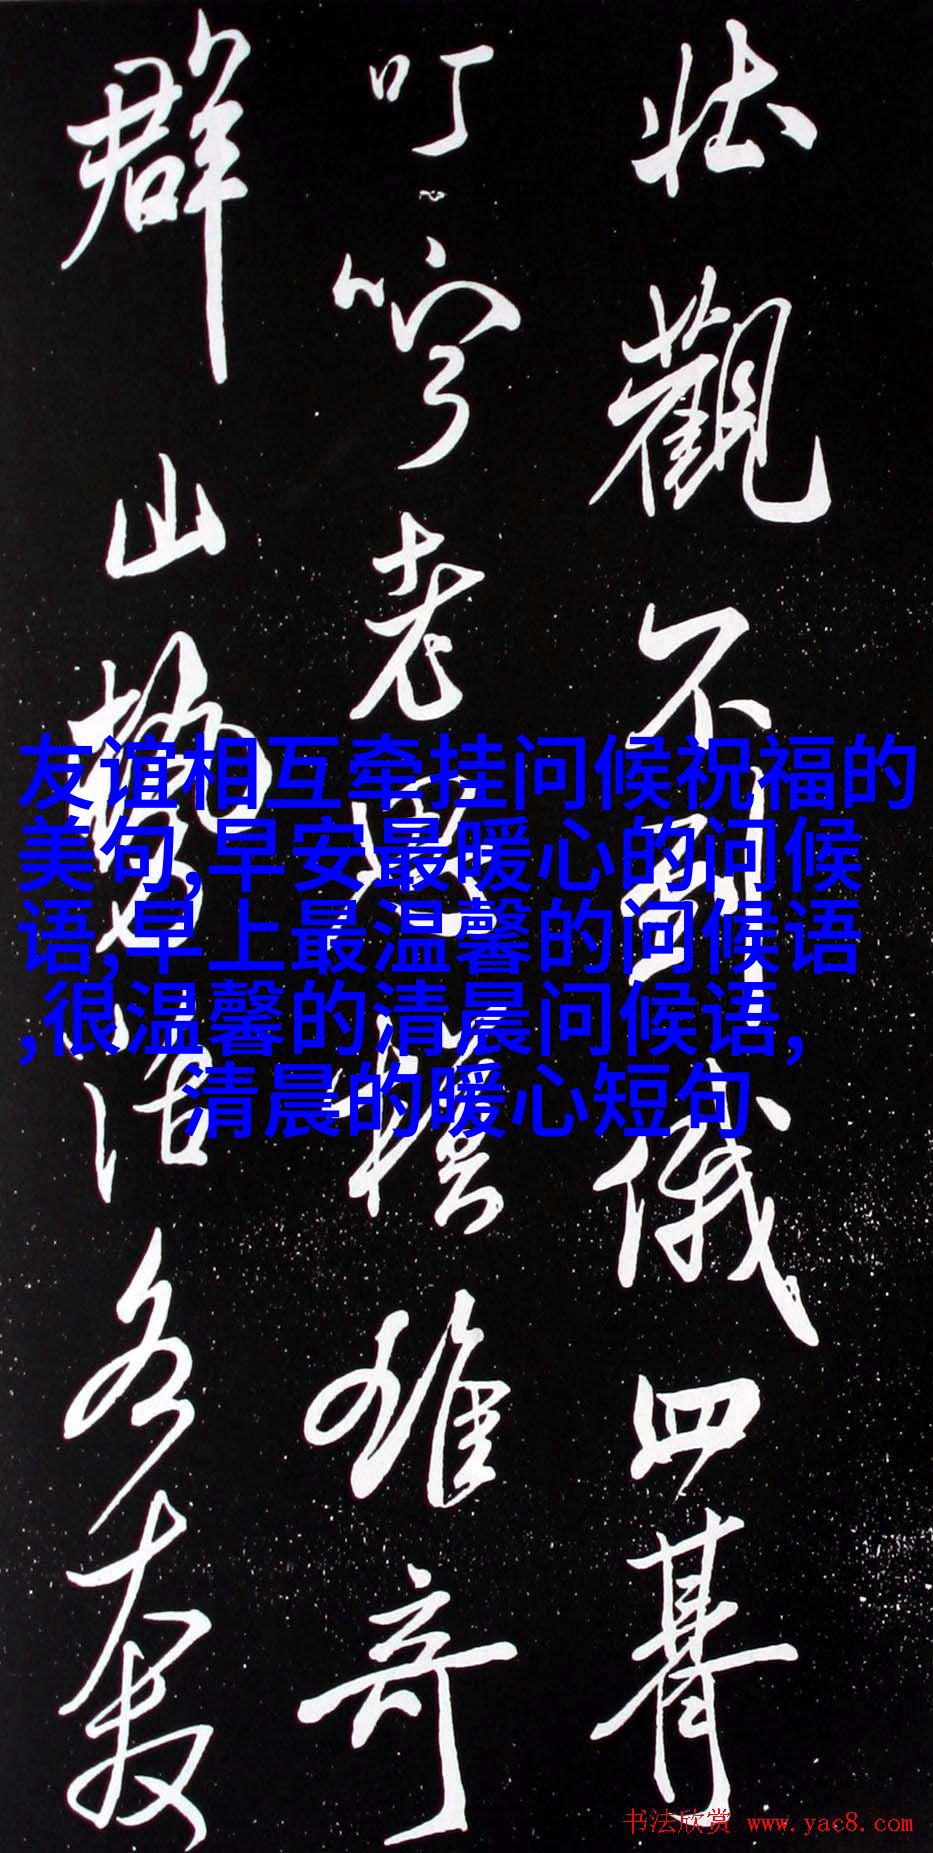 壯觀不俄四朞
叮嚀老雄奇
群山勢各
友谊相互牵挂问候祝福的
美句,早安最暖心的问候
语,早上最温馨的问候语
,很温馨的清晨问候语,
清晨的暖心短句
书法欣赏 www.yac8.com